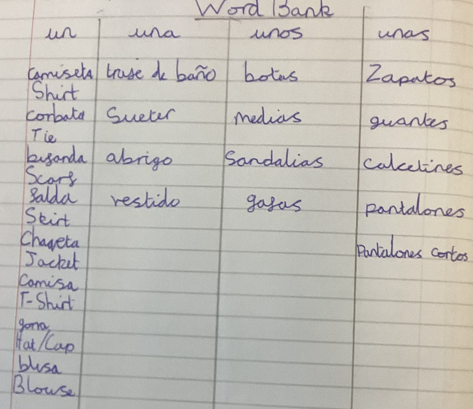 Word Bank
un una unos unas
camiseta truse de baño botas Zapatos
Shirt
corbata Sueter medias guantes
Tie
bufanda abrigo Sandalias calcetines
Scarf
falda vestido gafas pantalones
Skirt
Chaqeta Pantalones cortos
Jacket
Camisa
T-Shirt
gorra
Hat/Cap
blusa
Blouse